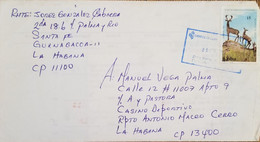 Rmte: Josué González Cabrera
2da 18 b % Palma y Rio
Santa Fe
Guanabacoa-11
La Habana
CP 11100
A: Manuel Vega Palma
Calle 12 # 11007 Apto 9
% A y Pastora
Casino Deportivo
Rpto Antonio Maceo Cerro
La Habana
CP 13400